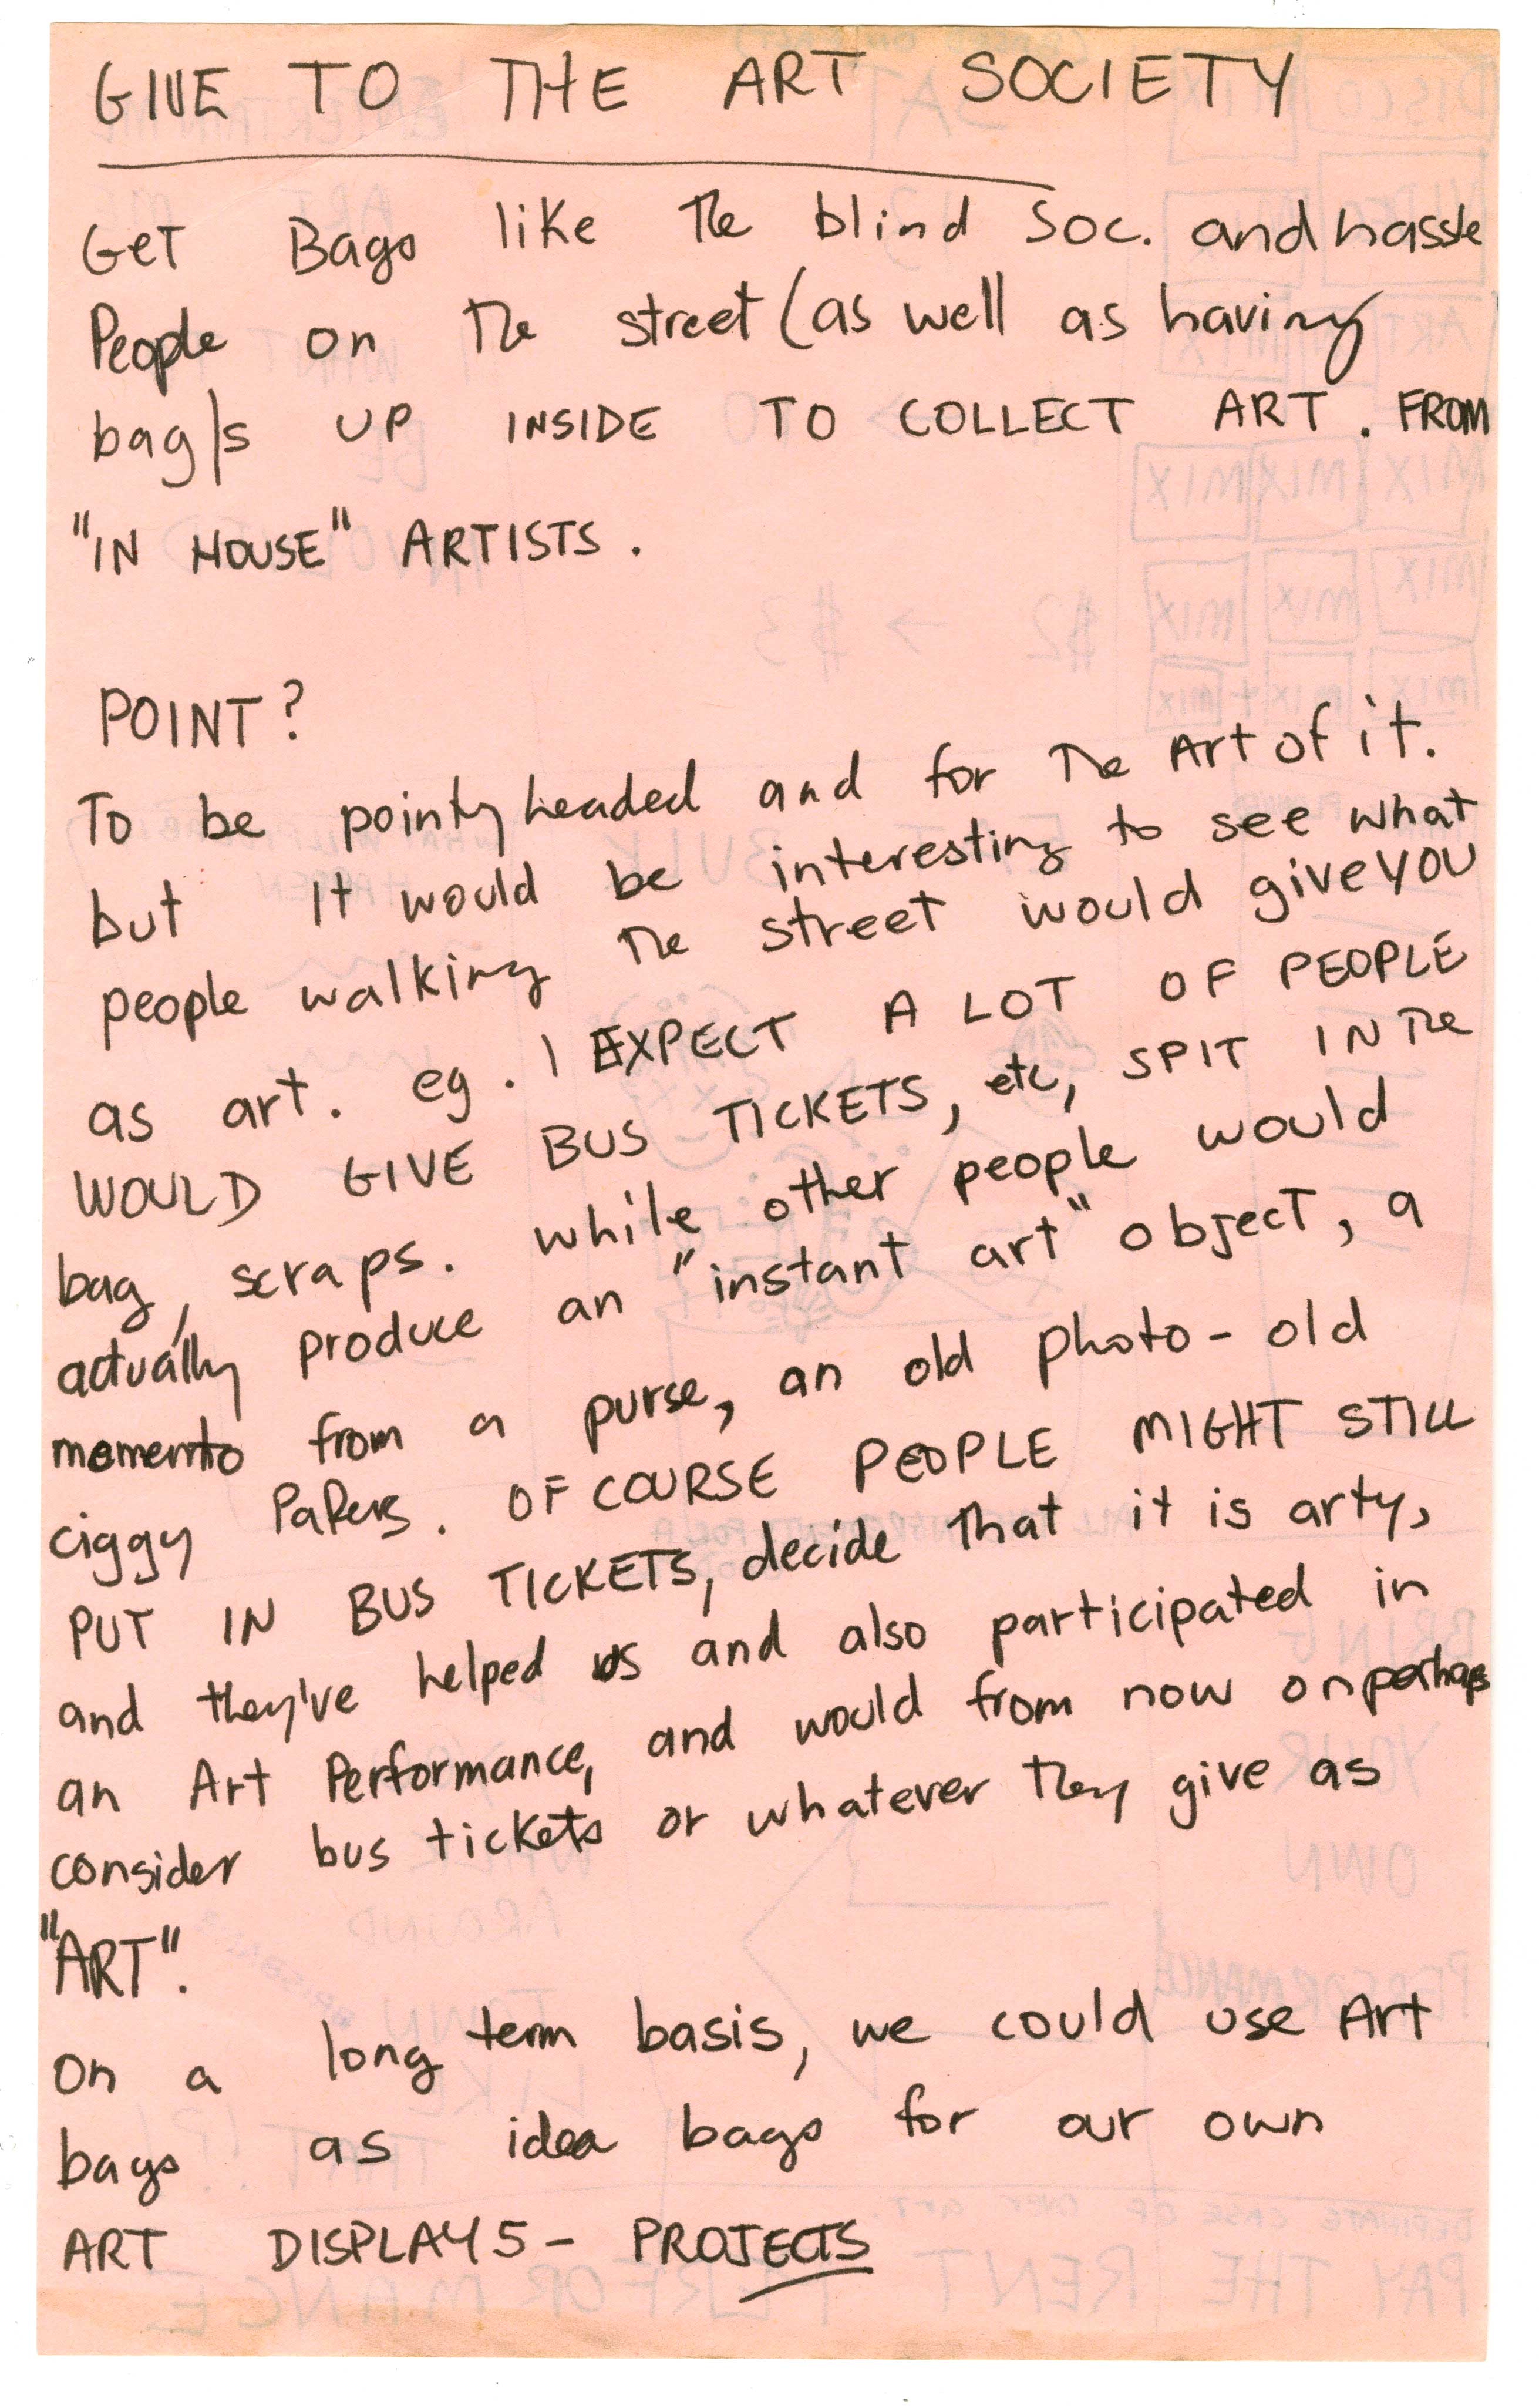 GIVE TO THE ART SOCIETY
Get Bags like the blind Soc. and hassle
People on the street (as well as having
bag/s UP INSIDE TO COLLECT ART. FROM
"IN HOUSE" ARTISTS.
POINT?
To be pointy headed and for the Art of it.
but It would be interesting to see what
people walking the street would give YOU
as art. eg. I EXPECT A LOT OF PEOPLE
WOULD GIVE BUS TICKETS, etc, SPIT IN the
bag, scraps. while other people would
actually produce an "instant art" object, a
momento from a purse, an old photo - old
ciggy Papers. OF COURSE PEOPLE MIGHT STILL
PUT IN BUS TICKETS, decide that it is arty,
and they've helped us and also participated in
an Art Performance, and would from now on perhaps
consider bus tickets or whatever they give as
"ART".
On a long term basis, we could use Art
bags as idea bags for our own
ART DISPLAYS - PROJECTS